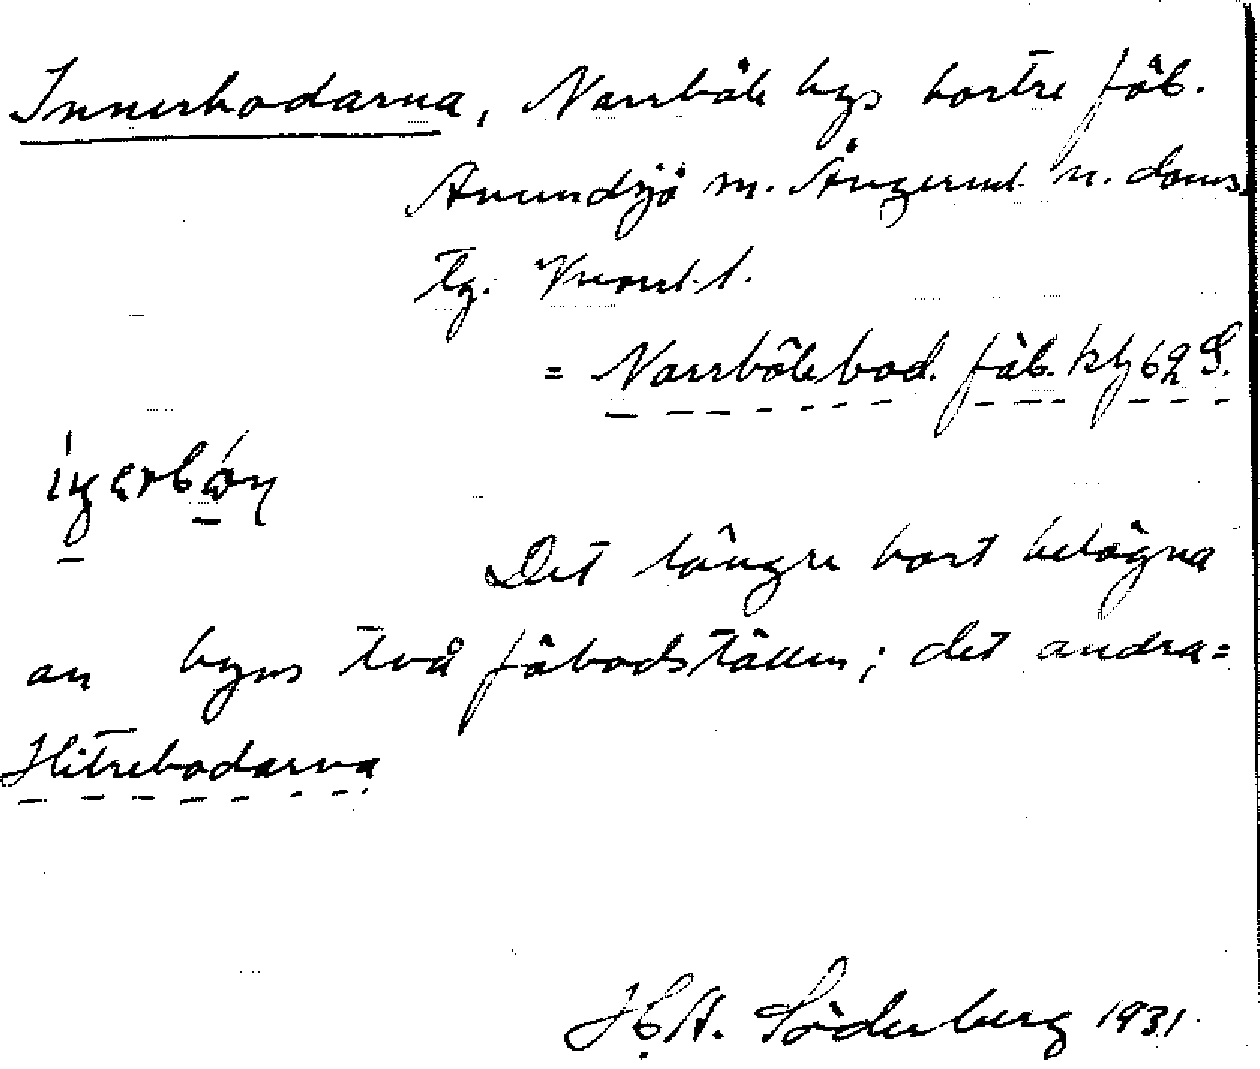 Innerbodarna, Norrböle bys bortre fäb.
Anundsjö sn. Ångerml. n. doms.
tg. Vnorrl. l.
= Norrbölebod. fäb. kbl 62 S.
Det längre bort belägna
av byns två fäbodställen; det andra =
Hitrebodarna
H. A. Söderberg 1931.